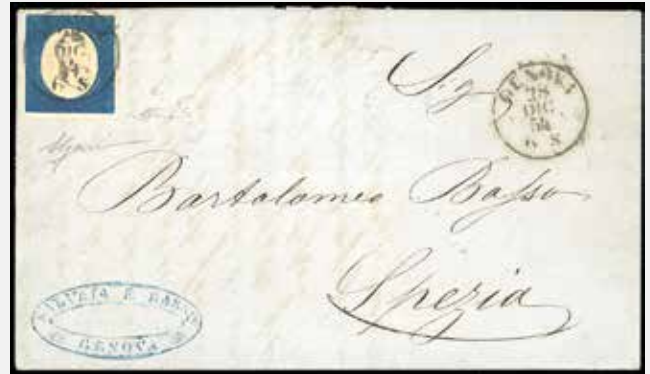 18
DIC.
54
6 S
Sig
GENOVA
18
DIC.
54
6 S
Bartolomeo Basso
Spezia
GENOVA